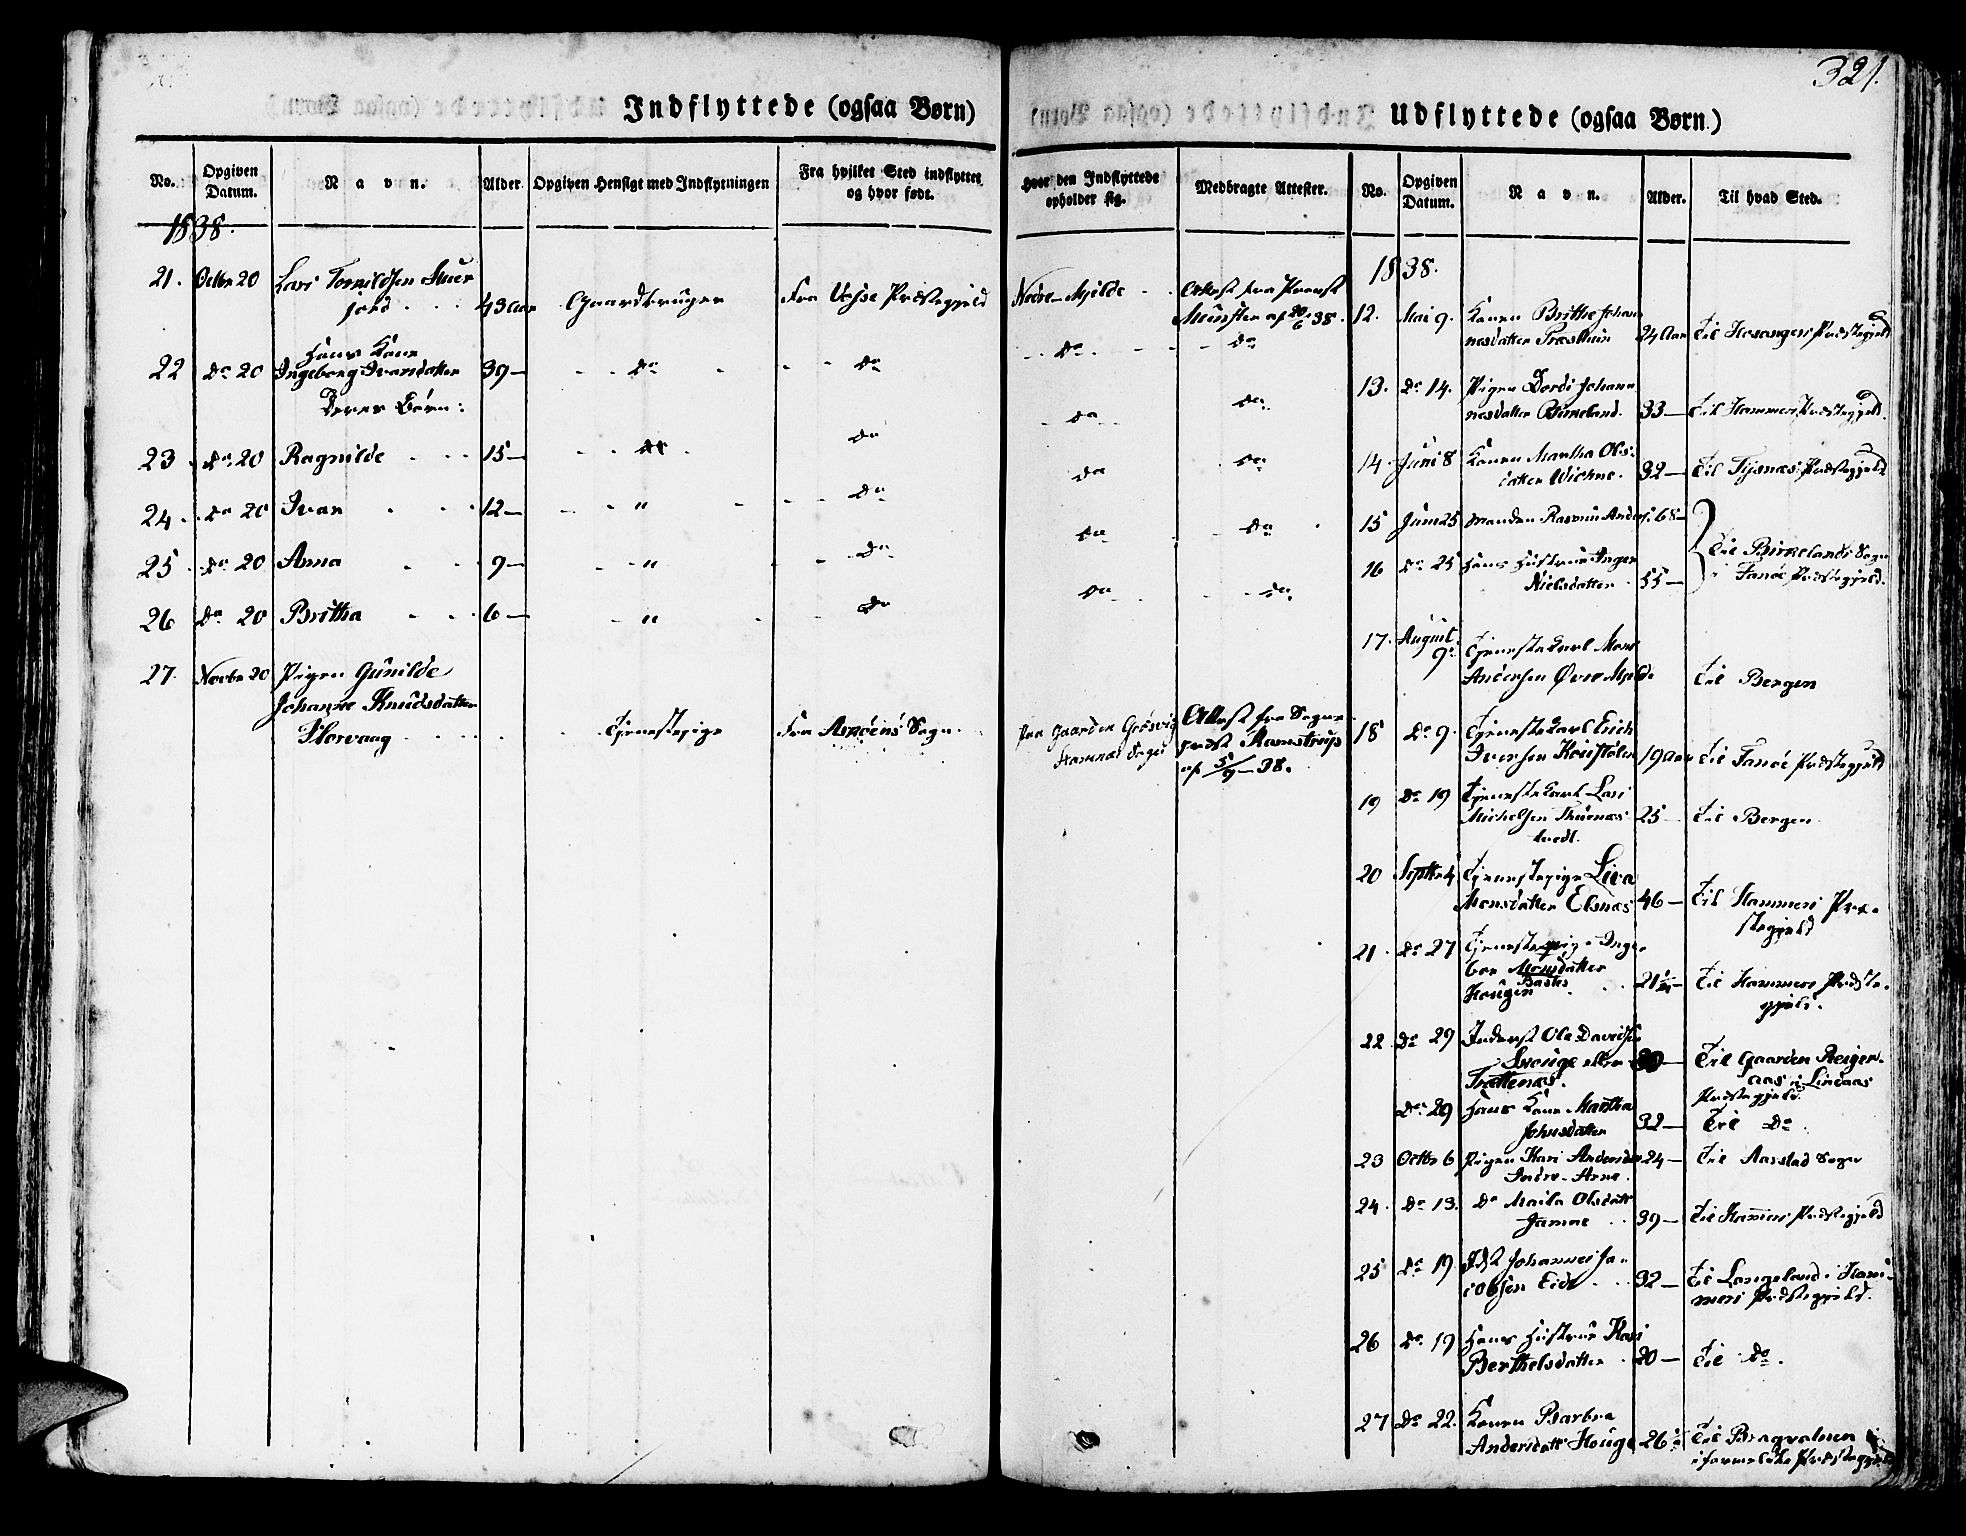 321.
Indflyttede (ogsaa Børn)
No.
Opgiven Datum.
Navn.
Alder
Opgiven Hensigt med Indflytningen
Fra hvilket Sted indflyttet og hvor født.
1838.
21. Octbr 20 Lars
jord 43 Aar Gaardbruger Fra Præstegjeld
22 do 20 Hans Kone
Ingeborg Ivarsdatter 39 — do do
Deres Børn:
23 do 20 Ragnilde 15 — do do
24. do 20 Ivar 12 — " do
25 do 20 Anna 9 — " do
26 do 20 Brittha 6 — " do
27. Novbr 20 Pigen Gunilde
Johanne Knudsdatter
Tjenestepige Fra Sogn.
Udflyttede (ogsaa Børn)
Hvor den Indflyttede opholder sig.
Medbragte Attester.
No.
Opgiven Datum.
Navn.
Alder.
Til hvad Sted.
Nedre Mjelde Attest fra Provst
Münster af 20/6 38.
do do
do do
do do
do do
do do
Paa Gaarden Attest fra Sogne
Sogn præst Ramstrup
af 5/9 – 38.
1838.
12. Mai 9. Konen Brithe Johan
nesdatter 24 Aar Til Hosangers Præstegjeld
13. do 14. Pigen Dordi Johan
nesdatter Birkeland. 33 — Til Hammers Præstegjeld.
14. Juni 8 Konen Martha Ols-
datter 32 — Til Tysnæs Præstegjeld
15 Juni 25 Manden Rasmus Anders. 68 —
16 do 25 Hans Hustrue Inger
Nielsdatter 55 — Til Birkelands Sogn
i Fanøe Præstegjeld.
17. August 9 Tjenestekarl Mons
Andersen Øvre Mjelde Til Bergen
18 do 9. Tjenestekarl Erich
Iversen 19 Aar Til Fanøe Præstegjeld
19 do 19 Tjenestekarl Lars
Michelsen 25 — Til Bergen
tvedt.
20 Septbr 4 Tjenestepige Liva
Monsdatter Elsnæs 46 — Til Hammers Præ-
stegjeld
21. do 27 Tjenestepige Inge-
bor Monsdatter
Haugen 21 1/2 — Til Hammers Præste-
gjeld.
22 do 29 Inderst Ole Davidsen
eller 30 — Til Gaarden
Trættenæs. aas i Lindaas
Præstegjeld.
do 29 Hans Kone Martha
Johnsdatter 32 — Til do
23 Octbr 6 Pigen Kari Andersdr 24 — Til Sogn
Indre-Arne.
24. do 13. do Olsdatt
39 — Til Hammers Præstegjeld
25 do 19 Idst Johannes Ja-
cobsen Eide 32 — Til Langeland i Ham-
mers Præstegjeld.
26 do 19 Hans Hustrue Kari
Berthelsdatter 20 — Til do.
27 do 22. Konen Barbra
Andersdatt Houge 26 1/2 Til
Præstegjeld